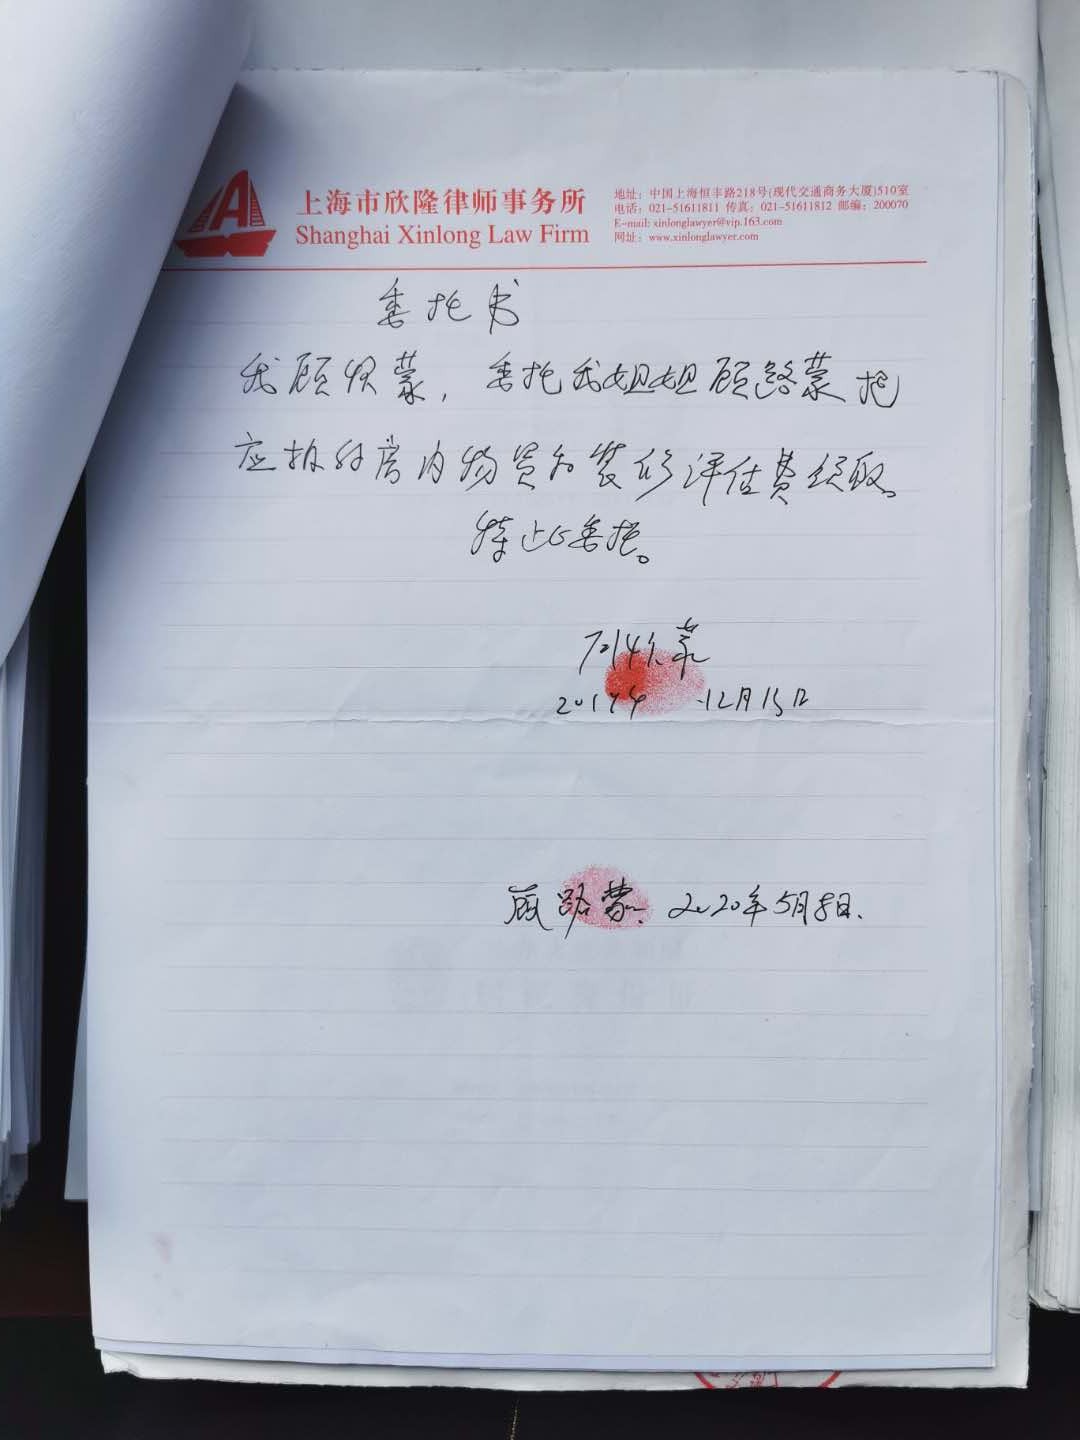 上海市欣隆律师事务所
Shanghai Xinlong Law Firm
地址：中国上海恒丰路218号(现代交通商务大厦)510室
电话：021-51611811 传真：021-51611812 邮编：200070
E-mail: xinlonglawyer@vip.163.com
网址：www.xinlonglawyer.com
委托书
我顾 蒙，委托我姐姐顾路蒙把
应拆的房内物资和装修评估费领取。
特此委托。
12月15日
顾路蒙 2020年5月8日.